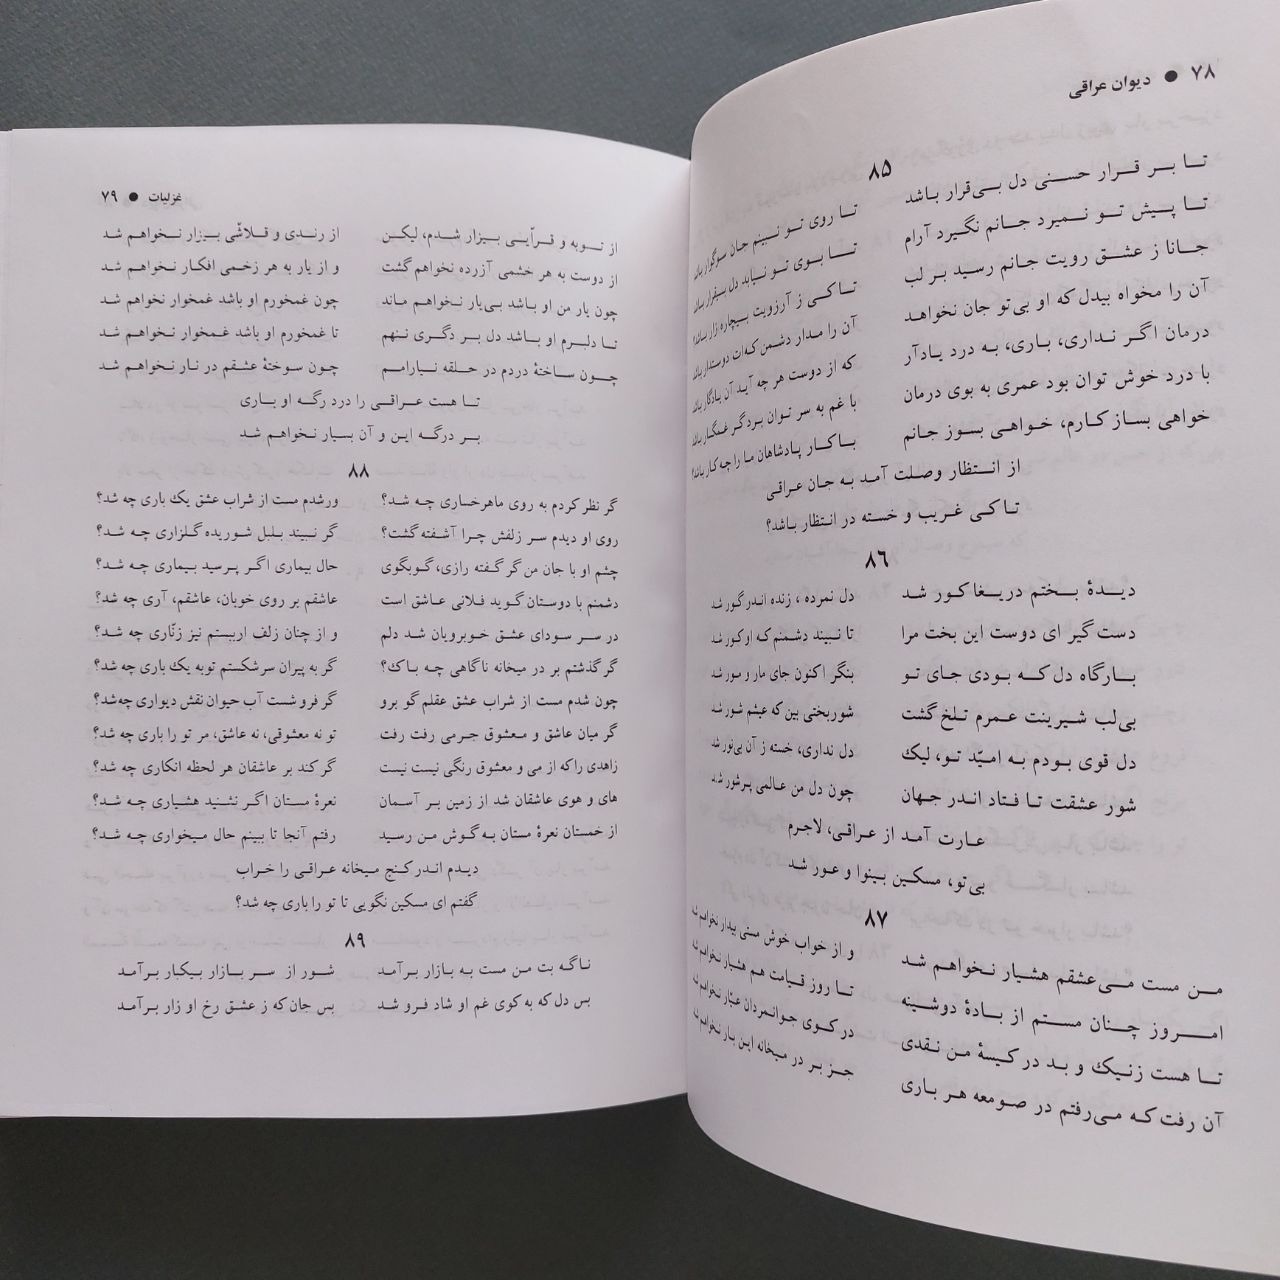 ۷۸ ● دیوان عراقی
۸۵
تا بر قرار حسنی دل بی‌قرار باشد تا روی تو نبینم جان سوگوار باشد
تا پیش تو نمیرد جانم نگیرد آرام تا بوی تو نیابد دل بیقرار باشد
جانا ز عشق رویت جانم رسید بر لب تا کی ز آرزویت بیچاره زار باشد؟
آن را مخواه بیدل که او بی‌تو جان نخواهد آن را مدار دشمن که‌ات دوستدار باشد
درمان اگر نداری، باری، به درد یادآر که از دوست هر چه آید آن یادگار باشد
با درد خوش توان بود عمری به بوی درمان با غم به سر توان برد گر غمگسار باشد
خواهی بساز کارم، خواهی بسوز جانم با کار پادشاهان ما را چه کار باشد؟
از انتظار وصلت آمد به جان عراقی
تا کی غریب و خسته در انتظار باشد؟
۸۶
دیدهٔ بختم دریغا کور شد دل نمرده ، زنده اندر گور شد
دست گیر ای دوست این بخت مرا تا نبیند دشمنم که او کور شد
بارگاه دل که بودی جای تو بنگر اکنون جای مار و مور شد
بی‌لب شیرینت عمرم تلخ گشت شوربختی بین که عیشم شور شد
دل قوی بودم به امیّد تو، لیک دل نداری، خسته ز آن بی‌نور شد
شور عشقت تا فتاد اندر جهان چون دل من عالمی پرشور شد
عارت آمد از عراقی، لاجرم
بی‌تو، مسکین بینوا و عور شد
۸۷
من مست می‌عشقم هشیار نخواهم شد و از خواب خوش مستی بیدار نخواهم شد
امروز چنان مستم از بادهٔ دوشینه تا روز قیامت هم هشیار نخواهم شد
تا هست ز نیک و بد در کیسهٔ من نقدی در کوی جوانمردان عیّار نخواهم شد
آن رفت که می‌رفتم در صومعه هر باری جز بر در میخانه این بار نخواهم شد
غزلیات ● ۷۹
از توبه و قرآیی بیزار شدم، لیکن از رندی و قلاشّی بیزار نخواهم شد
از دوست به هر خشمی آزرده نخواهم گشت و از یار به هر زخمی افکار نخواهم شد
چون یار من او باشد بی‌یار نخواهم ماند چون غمخورم او باشد غمخوار نخواهم شد
تا دلبرم او باشد دل بر دگری ننهم تا غمخورم او باشد غمخوار نخواهم شد
چون ساختهٔ دردم در حلقه نیارامم چون سوختهٔ عشقم در نار نخواهم شد
تا هست عراقی را درد رگه او باری
بر درگه این و آن بسیار نخواهم شد
۸۸
گر نظر کردم به روی ماهرخساری چه شد؟ ور شدم مست از شراب عشق یک باری چه شد؟
روی او دیدم سر زلفش چرا آشفته گشت؟ گر نبیند بلبل شوریده گلزاری چه شد؟
چشم او با جان من گر گفته رازی، گو بگوی حال بیماری اگر پرسید بیماری چه شد؟
دشمنم با دوستان گوید فلانی عاشق است عاشقم بر روی خوبان، عاشقم، آری چه شد؟
در سر سودای عشق خوبرویان شد دلم و از چنان زلف ار ببستم نیز زنّاری چه شد؟
گر گذشتم بر در میخانه ناگاهی چه باک؟ گر به پیران سر شکستم توبه یک باری چه شد؟
چون شدم مست از شراب عشق عقلم گو برو گر فرو شست آب حیوان نقش دیواری چه شد؟
گر میان عاشق و معشوق جرمی رفت رفت تو نه معشوقی، نه عاشق، مر تو را باری چه شد؟
زاهدی را که از می و معشوق رنگی نیست نیست گر کند بر عاشقان هر لحظه انکاری چه شد؟
های و هوی عاشقان شد از زمین بر آسمان نعرهٔ مستان اگر نشنید هشیاری چه شد؟
از خمستان نعرهٔ مستان به گوش من رسید رفتم آنجا تا ببینم حال میخواری چه شد؟
دیدم اندر کنج میخانه عراقی را خراب
گفتم ای مسکین نگویی تا تو را باری چه شد؟
۸۹
ناگه بت من مست به بازار برآمد شور از سر بازار بیکبار برآمد
بس دل که به کوی غم او شاد فرو شد بس جان که ز عشق رخ او زار برآمد